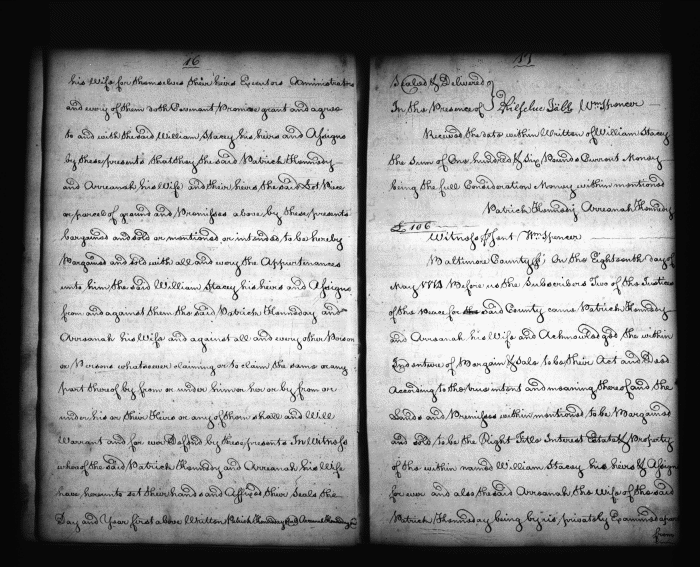 76
his Wife for themselves their heirs Executors Administrators
and every of them doth Covenant Promise grant and agree
to and with the said William Stacey his heirs and Assigns
by these presents that they the said Patrick Kennday
and Arreanah his Wife and their heirs the said Lot Piece
or parcel of ground and Premisses above by these presents
bargained and sold or mentioned or intended to be hereby
Bargained and Sold with all and every the Appurtenances
unto him the said William Stacey his heirs and Assigns
from and against them the said Patrick Kennday and
Arreanah his Wife and against all and every other Person
or Persons whatsoever claiming or to claim the same or any
part thereof by from or under him or her or by from or
under his or their Heirs or any of them shall and Will
Warrant and for ever Defend by these presents In Witness
whereof the said Patrick Kennday and Arreanah his Wife
have hereunto set their hands and Affixed their Seals the
Day and Year first above Written Patrick Kennday
Sealed & Delivered
In the Presence of Wm Spencer
Received the date within Written of William Stacey
the Sum of One hundred & Six Pounds Current Money
being the full Consideration Money within mentioned
Patrick Kennday Arreanah Kennday
£ 106
Witness Wm Spencer
Baltimore County On the Eighteenth day of
May Before us the Subscribers Two of the Justices
of the Peace for the said County came Patrick Kennday
and Arreanah his Wife and Acknowledged the within
Indenture of Bargain & Sale to be their Act and Deed
According to the true intent and meaning thereof and the
Lands and Premisses within mentioned to be Bargained
and sold to be the Right Title Interest Estate & Property
of the within named William Stacey his heirs & Assigns
for ever and also the said Arreanah the Wife of the said
Patrick Kennday being by us privately Examined apart
from